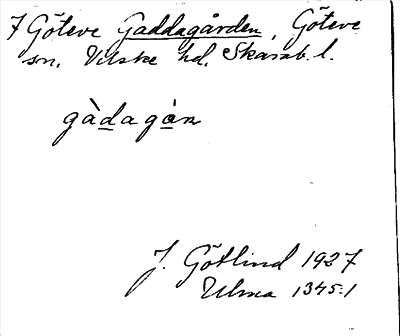 7 Göteve Gaddagården, Göteve
sn, Vilske hd, Skarab. l.
gàdagȧn
J. Götlind 1927
Ulma 1345:1